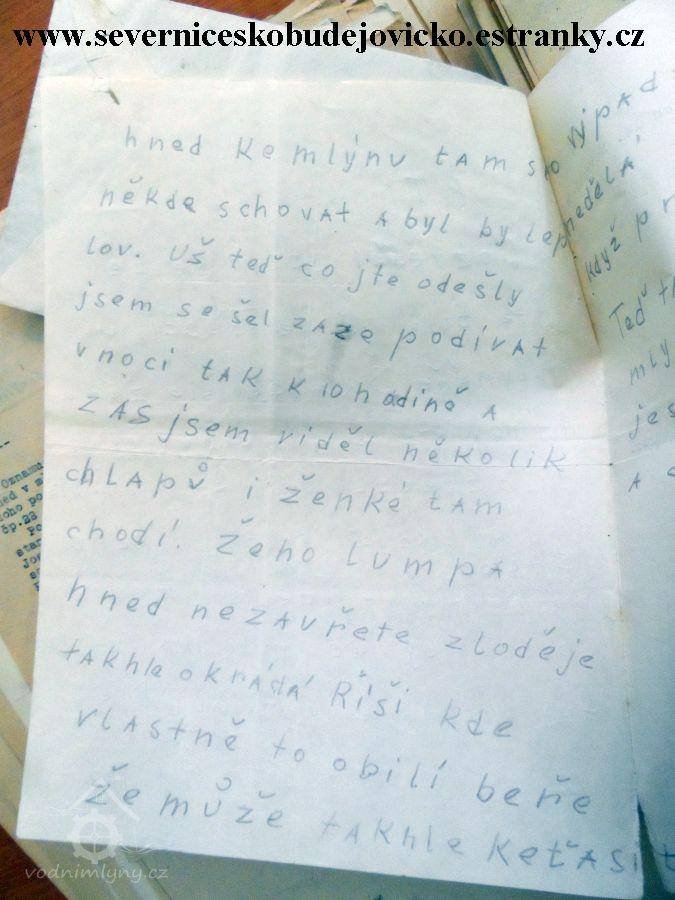 www.severniceskobudejovicko.estranky.cz
hned ke mlýnu tam
někde schovat a byl by lep
lov. Uš teď co jte odešly
jsem se šel zaze podívat
v noci tak k 10 hadině a
zas jsem viděl několik
chlapů i ženké tam
chodí. Žeho lumpa
hned nezavřete zloděje
takhle okrádá Říši kde
vlastně to obilí beře
že může takhle keťasit
výpad
neděla
když p
Teď t
mly
jes
a
Oznam
čp.28
star
vodnimlyny.cz